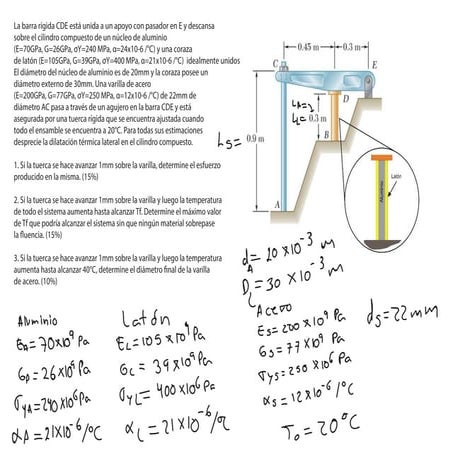 La barra rígida CDE está unida a un apoyo con pasador en E y descansa
sobre el cilindro compuesto de un núcleo de aluminio
(E=70GPa, G=26GPa, σY=240 MPa, α=24x10-6 /°C) y una coraza
de latón (E=105GPa, G=39GPa, σY=400 MPa, α=21x10-6 /°C) idealmente unidos
El diámetro del núcleo de aluminio es de 20mm y la coraza posee un
diámetro externo de 30mm. Una varilla de acero
(E=200GPa, G=77GPa, σY=250 MPa, α=12x10-6 /°C) de 22mm de
diámetro AC pasa a través de un agujero en la barra CDE y está
asegurada por una tuerca rígida que se encuentra ajustada cuando
todo el ensamble se encuentra a 20°C. Para todas sus estimaciones
desprecie la dilatación térmica lateral en el cilindro compuesto.
1. Si la tuerca se hace avanzar 1mm sobre la varilla, determine el esfuerzo
producido en la misma. (15%)
2. Si la tuerca se hace avanzar 1mm sobre la varilla y luego la temperatura
de todo el sistema aumenta hasta alcanzar Tf. Determine el máximo valor
de Tf que podría alcanzar el sistema sin que ningún material sobrepase
la fluencia. (15%)
3. Si la tuerca se hace avanzar 1mm sobre la varilla y luego la temperatura
aumenta hasta alcanzar 40°C, determine el diámetro final de la varilla
de acero. (10%)
0.45 m
0.3 m
C
E
D
LA=
LL= 0.3 m
B
Ls= 0.9 m
A
Aluminio
Latón
dA= 20×10-3 m
DL= 30×10-3 m
Aluminio
EA= 70×109 Pa
GA= 26×109 Pa
σYA= 240×106 Pa
αA= 21×10-6/°C
Latón
EL= 105×109 Pa
GL= 39×109 Pa
σYL= 400×106 Pa
αL= 21×10-6/°C
Acero
Es= 200×109 Pa
Gs= 77×109 Pa
σYs= 250×106 Pa
αs= 12×10-6/°C
To= 20°C
ds= 22mm